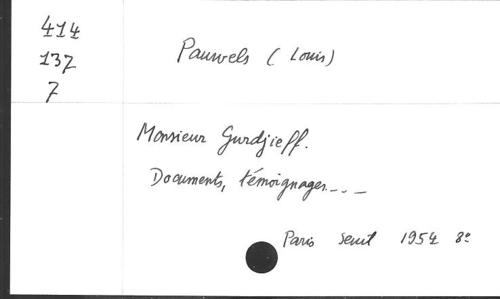 414
137
7
Pauwels (Louis)
Monsieur Gurdjieff.
Documents, témoignages...
Paris Seuil 1954 8°